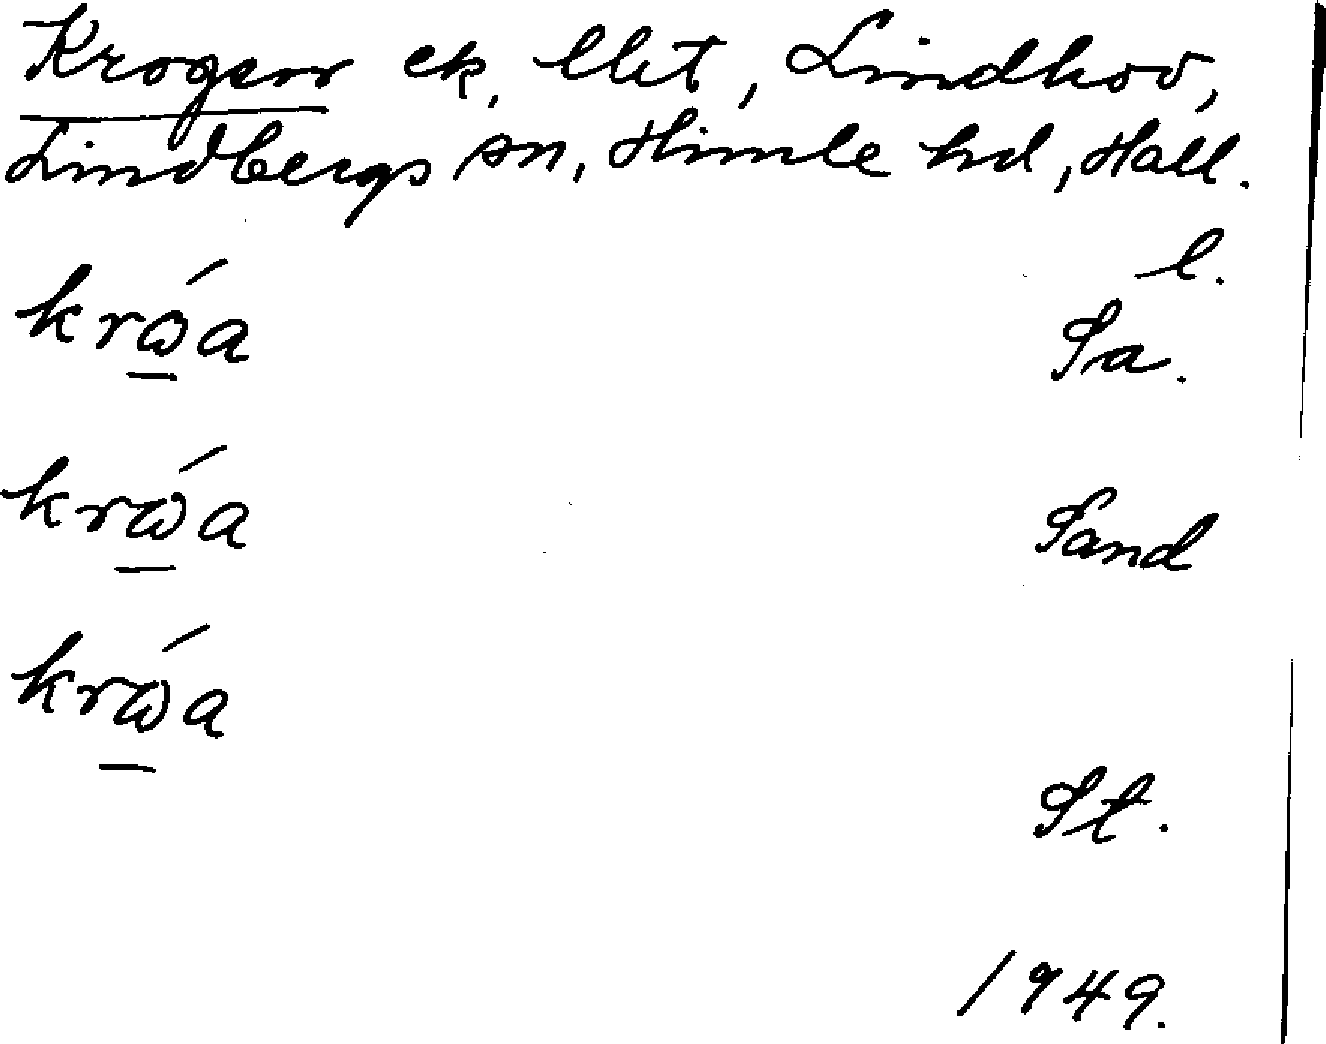 Krogen ek, llet, Lindhov,
Lindbergs sn, Himle hd, Hall.
l.
krώa Sa.
krώa Sand
krώa
St.
1949.